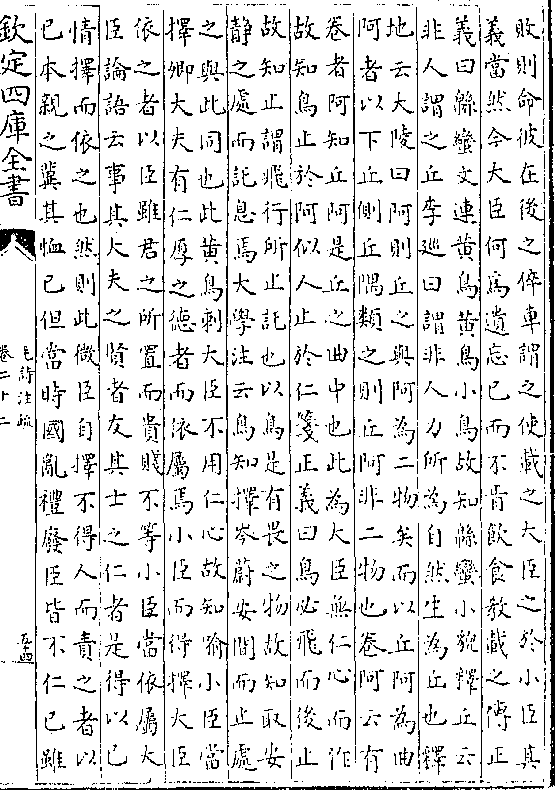 敗則命彼在後之倅車謂之使載之大臣之於小臣其
義當然今大臣何爲遺忘已而不肯飲食教載之傳正
義曰緜蠻文連黄鳥黄鳥小鳥故知緜蠻小貌釋丘云
非人謂之丘李廵曰謂非人力所為自然生為丘也釋
地云大陵曰阿則丘之與阿為二物矣而以丘阿為曲
阿者以下丘側丘隅類之則丘阿非二物也卷阿云有
卷者阿知丘阿是丘之曲中也此為大臣無仁心而作
故知鳥止於阿似人止於仁箋正義曰鳥必飛而後止
故知止謂飛行所止託也以鳥是有畏之物故知取安
静之處而託息焉大學注云鳥知擇岑蔚安間而止處
之與此同也此黄鳥刺大臣不用仁心故知喻小臣當
擇卿大夫有仁厚之德者而依屬焉小臣而得擇大臣
依之者以臣雖君之所置而貴賤不等小臣當依屬大
臣論語云事其大夫之賢者友其士之仁者是得以已
情擇而依之也然則此微臣自擇不得人而責之者以
已本親之冀其恤已但當時國亂禮廢臣皆不仁已雖
欽定四庫全書
毛詩注疏
卷二十二